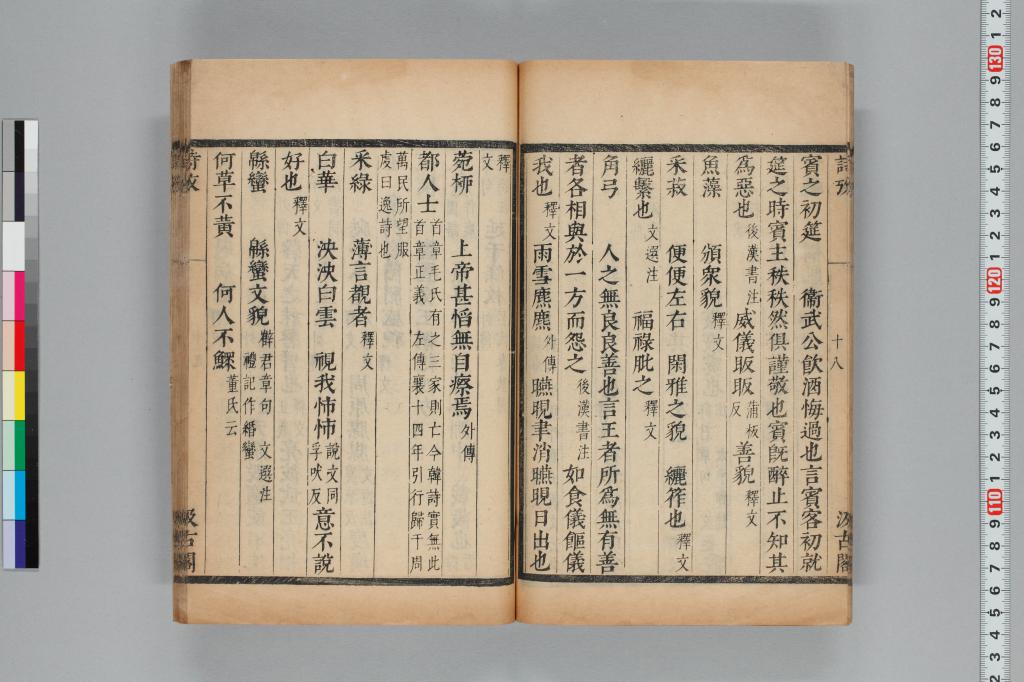 詩攷
十八
汲古閣
賓之初筵　衞武公飲酒悔過也言賓客初就
筵之時賓主秩秩然俱謹敬也賓旣醉止不知其
爲惡也後漢書注威儀昄昄蒲板反善貌釋文
魚藻　頒衆貌釋文
采菽　便便左右　閑雅之貌　纚筰也釋文
纚繫也文選注　福祿肶之釋文
角弓　人之無良良善也言王者所爲無有善
者各相與於一方而怨之後漢書注　如食儀饇儀
我也釋文雨雪麃麃外傳曣晛聿消曣晛日出也
釋文
菀栁　上帝甚慆無自瘵焉外傳
都人士首章毛氏有之三家則亡今韓詩實無此首章正義　左傳襄十四年引行歸于周
萬民所望服虔曰逸詩也
采綠　薄言覩者釋文
白華　泱泱白雲　視我怖怖說文同孚吠反意不說
好也釋文
緜蠻　緜蠻文貌薛君章句　文選注禮記作緡蠻
何草不黃　何人不鰥董氏云
詩攷
汲古閣
12
130
9
8
7
6
5
4
3
2
1
120
9
8
7
6
5
4
3
2
1
110
9
8
7
6
5
4
3
2